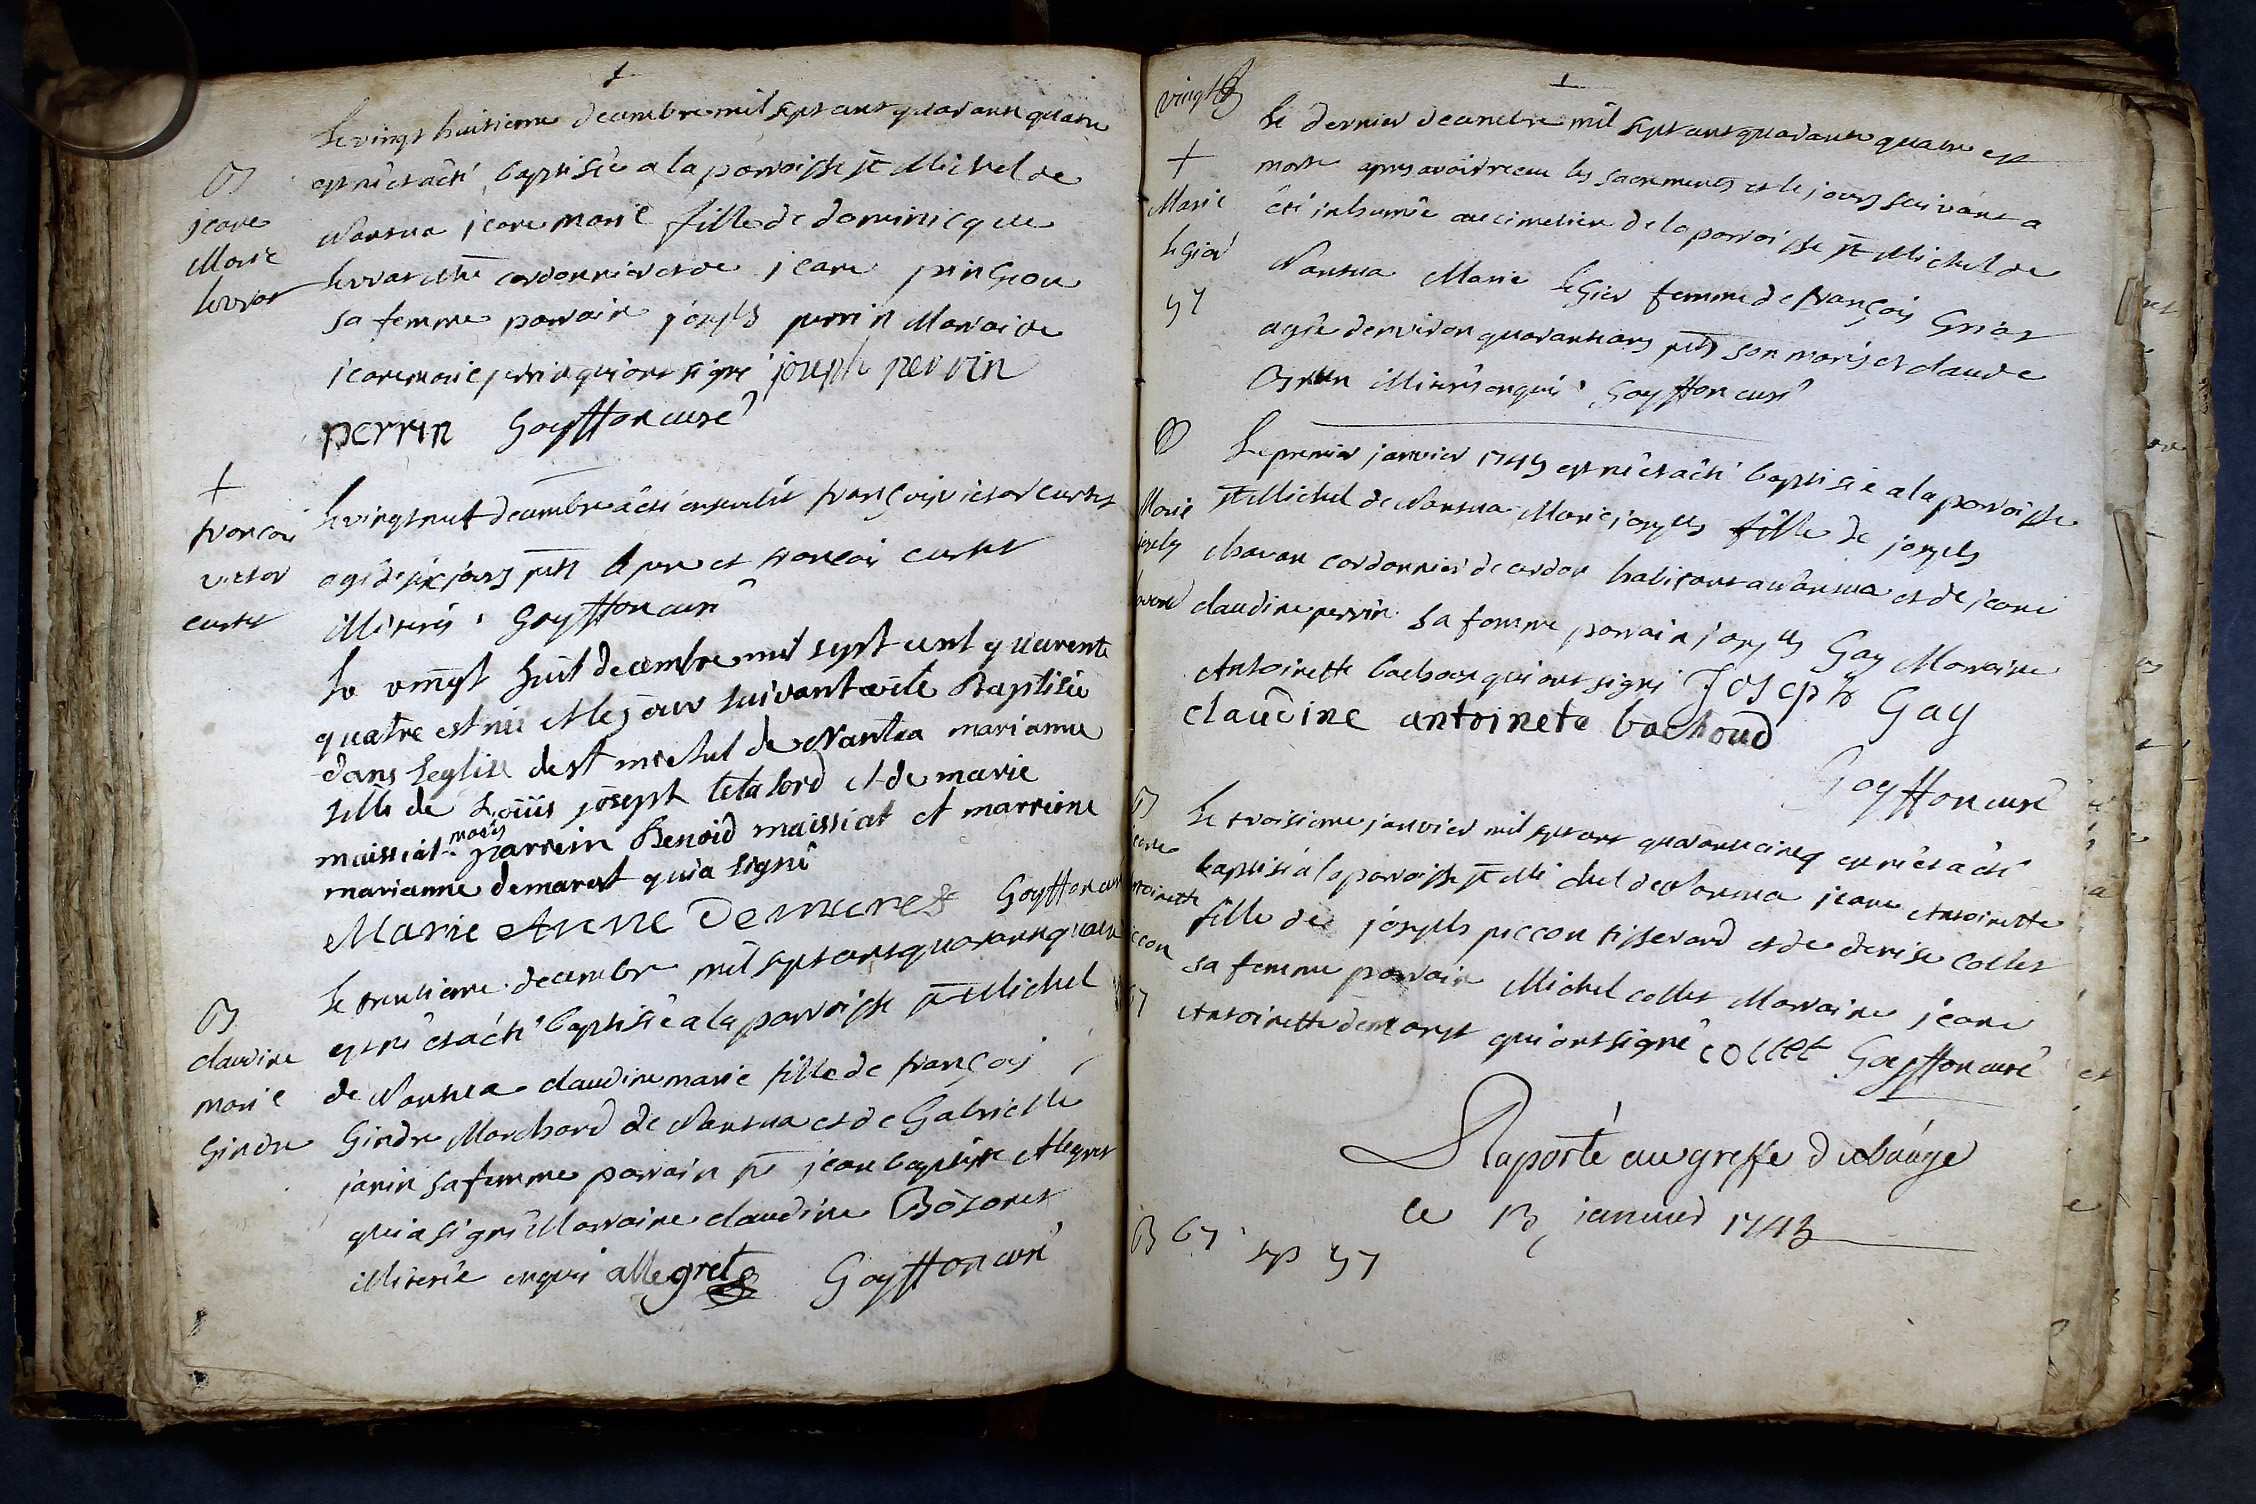 Le vingt huitieme decembre mil sept cent quarante quatre
B
est né et a été baptisée a la parroisse st Michel de
jeane
Marie
Nantua jeane marie fille de dominicque
cordonnier et de jeane pingeon
sa femme parrain joseph perrin Marraine
jeane marie perrin qui ont signé joseph perrin
perrin Goyffon curé
+
françois
victor
curtet
Le vingt neuf decembre a été enseveli françois victor curtet
agé de six jours pnt le pere et françois curtet
illiterés. Goyffon curé
Le vingt huit decembre mil sept cent quarente
quatre est né et le jour suivant a été Baptisée
dans leglise de st michel de Nantua marianne
fille de Loüis joseph letalord et de marie
maissiat mariés parrein Benoid maissiat et marreine
marianne demarest qui a signé
Marie Anne Demarest Goyffon curé
Le trentieme decembre mil sept cent quarante quatre
B
claudine
marie
Gindre
est né et a été baptisée a la parroisse st Michel
de Nantua claudine marie fille de françois
Gindre Marchand de Nantua et de Gabrielle
janin sa femme parrain sr jean baptiste Allegret
qui a signé Marraine claudine Bozonet
illiterée enquise allegret Goyffon curé
vingt
+
Marie
Legier
57
Le dernier decembre mil sept cent quarante quatre est
morte apres avoir receu les sacrements et le jours suivant a
été inhumée au cimetiere de la parroisse st Michel de
Nantua Marie Legier femme de françois Griot
agée denviron quarante ans pnts son maris et claude
illiterés enquis. Goyffon curé
B
Marie
joseph
Le premier janvier 1745 est né et a été baptisée a la parroisse
st Michel de Nantua Marie joseph fille de joseph
chavan cordonnier de cerdon habitant a Nantua et de jeane
claudine perrin sa femme parrain joseph Gay Marraine
Antoinette bachoud qui ont signé Joseph Gay
claudine antoinete bachoud
Goyffon curé
B
jeane
antoinette
piccon
67
Le troisieme janvier mil sept cent quarante cinq est né et a été
baptisé a la parroisse st Michel de Nantua jeane Antoinette
fille de joseph piccon tisserand et de denise collet
sa femme parrain Michel collet Marraine jeane
Antoinette demarest qui ont signé collet Goyffon curé
Raporté au greffe du
ce 13 janvier 1745
B 67 sep 57